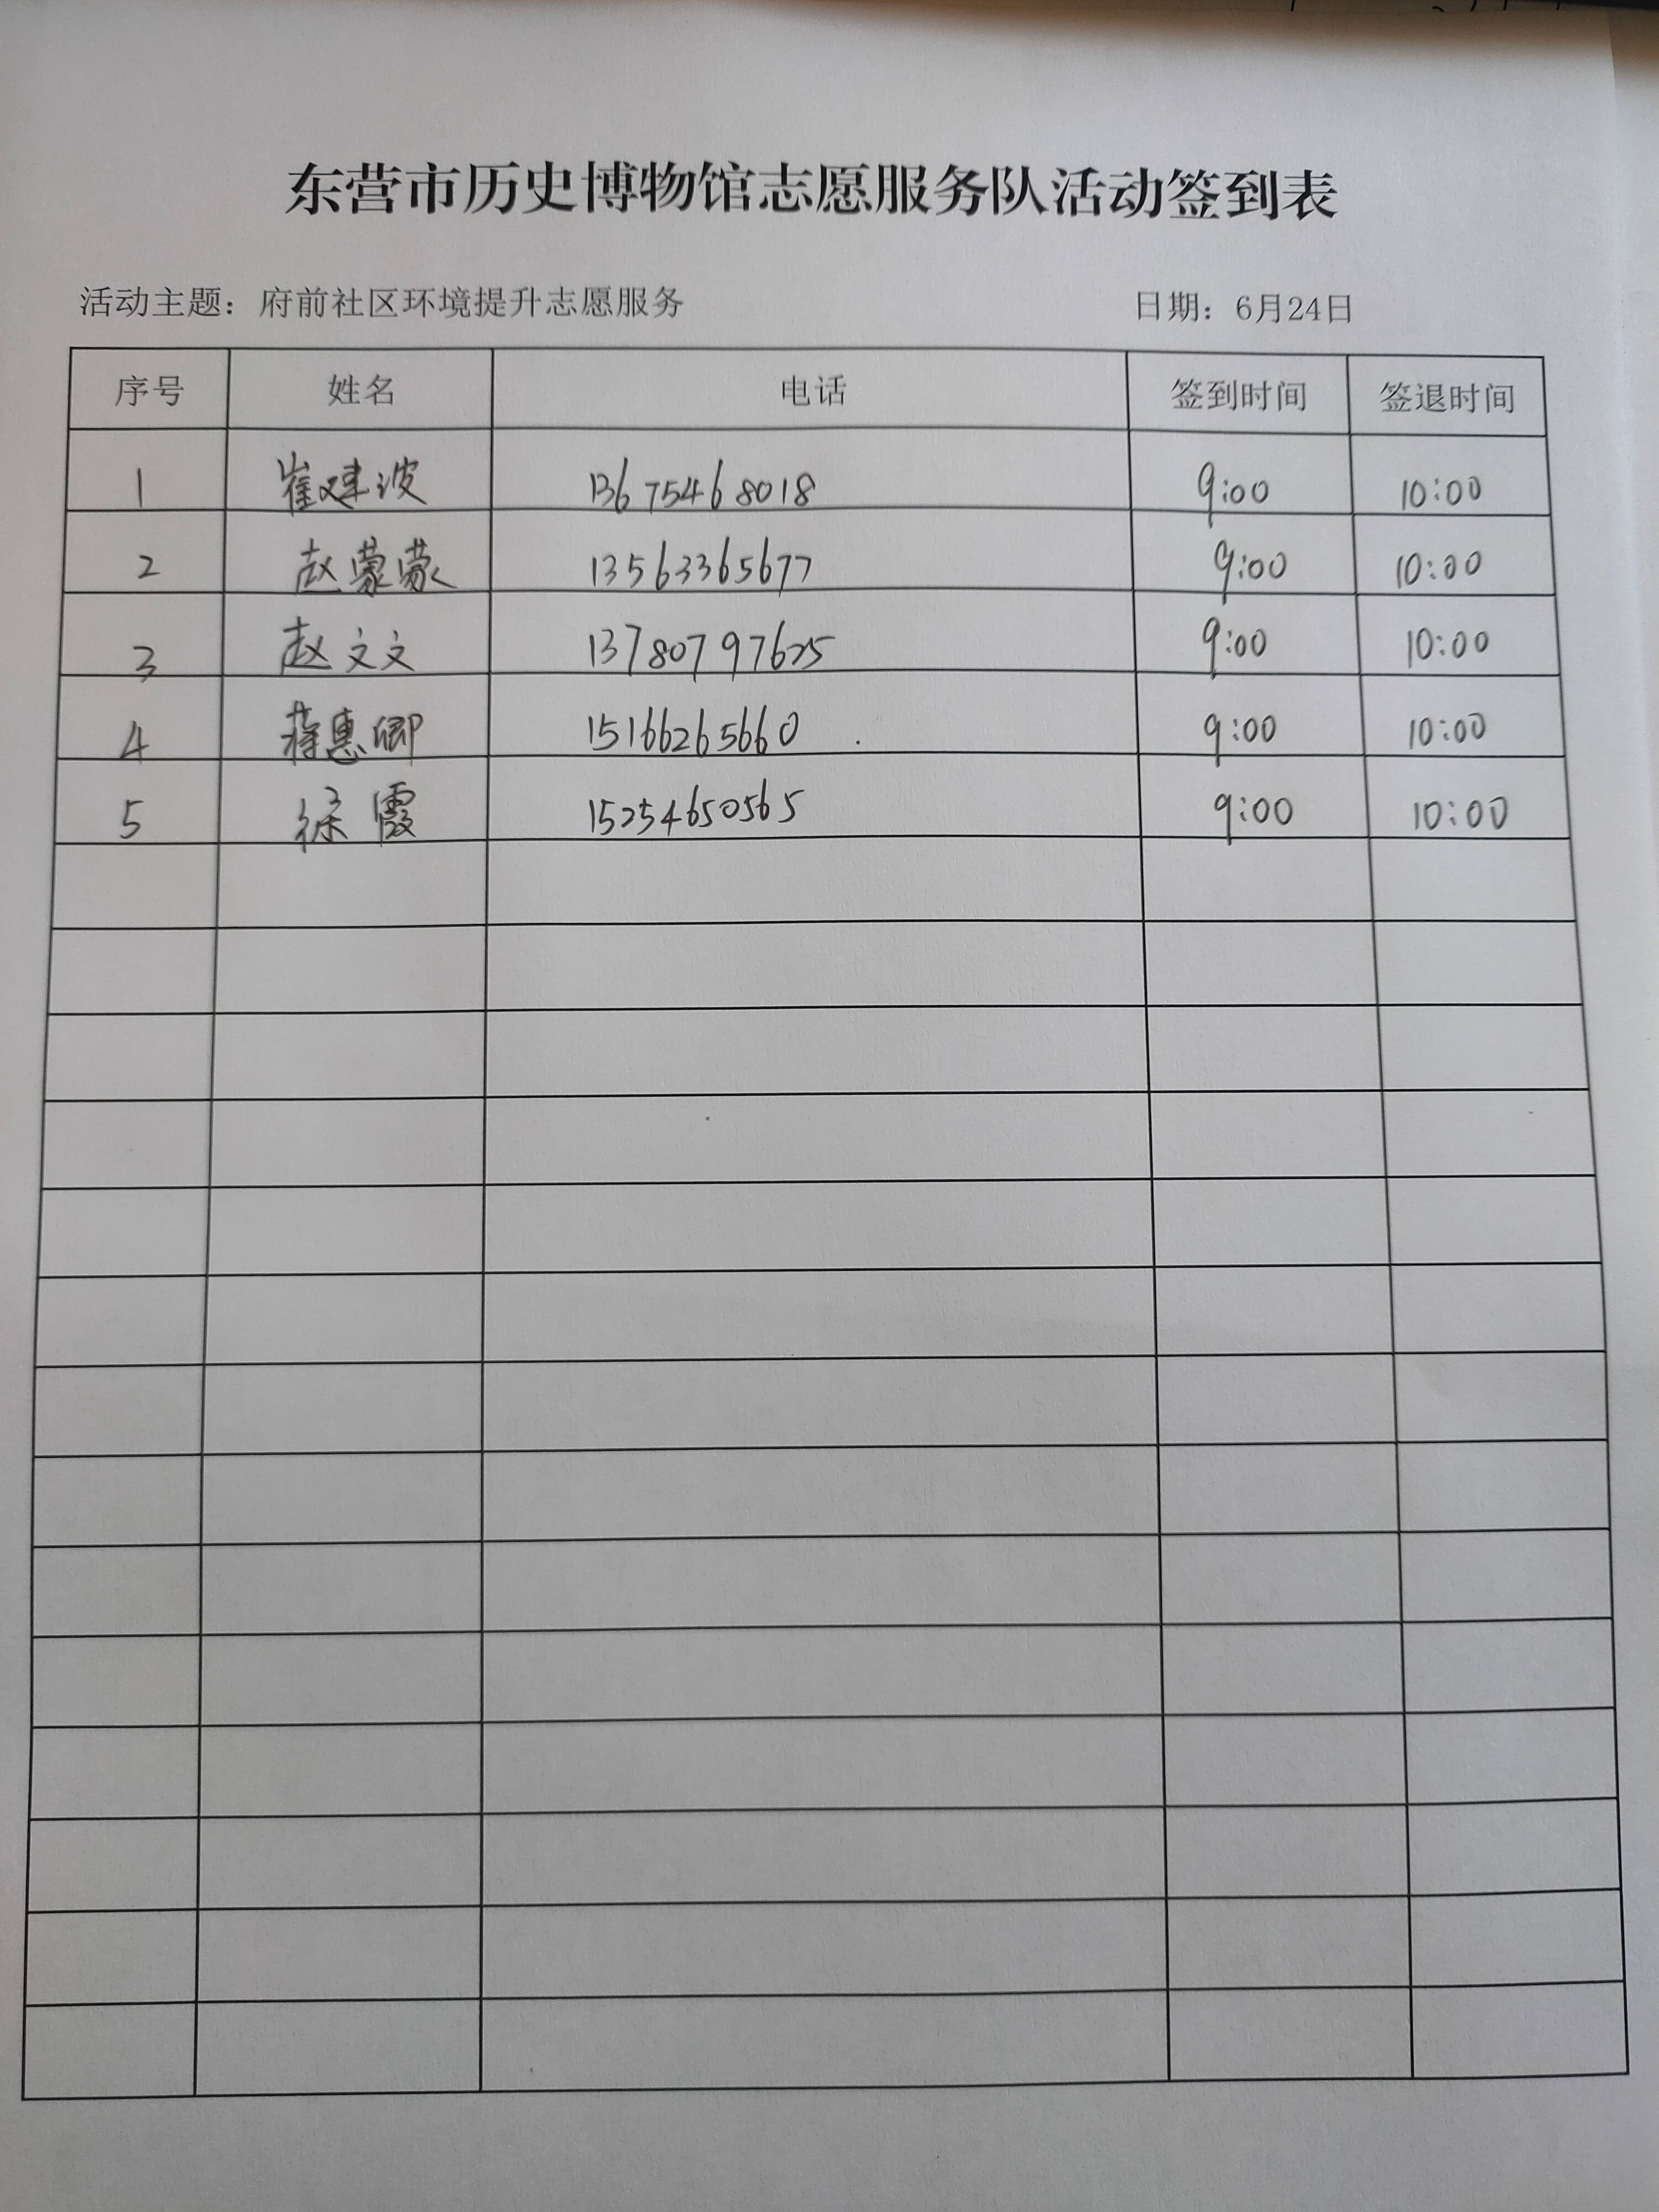 东营市历史博物馆志愿服务队活动签到表
活动主题：府前社区环境提升志愿服务 日期：6月24日
序号 姓名 电话 签到时间 签退时间
1 崔建波 13675468018 9:00 10:00
2 赵蒙蒙 13563365677 9:00 10:00
3 赵文文 13780797625 9:00 10:00
4 蒋惠卿 15166265660 9:00 10:00
5 徐霞 15254650565 9:00 10:00